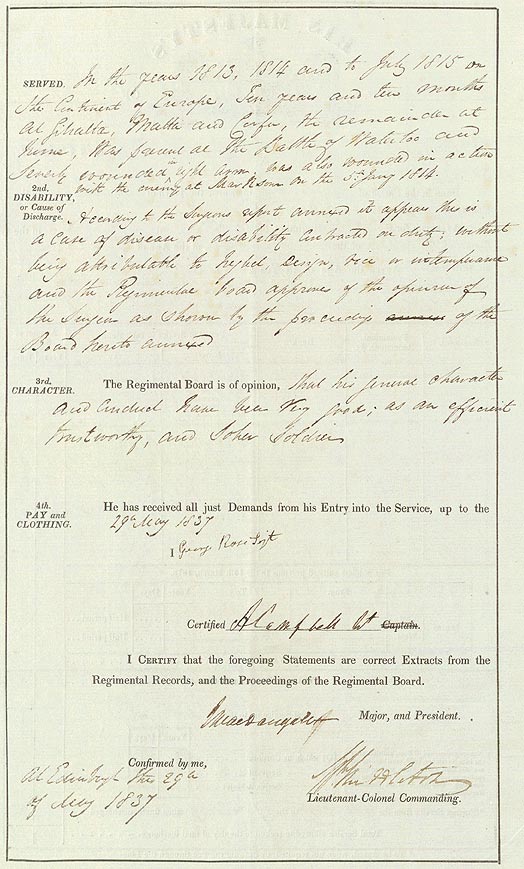 SERVED. In the years 1813, 1814 and to July 1815 on
the Continent of Europe, Ten years and two months
at Gibralta, Malta and Corfu, the remainder at
home, Was present at the Battle of Waterloo and
severly wounded in right arm, was also wounded in action
with the enemy at Merksem on the 5th Jany 1814.
2nd.
DISABILITY,
or Cause of
Discharge.
According to the Surgeons report annexed it appears this is
a case of disease or disability contracted on duty; without
being attributable to neglect, design, vice or intemperance
and the Regimental board approves of the opinion of
the Surgeon as shown by the proceedings annexed of the
Board hereto annexed
3rd.
CHARACTER.
The Regimental Board is of opinion, that his general character
and conduct have been very good; as an efficient
trustworthy, and sober Soldier
4th.
PAY and
CLOTHING.
He has received all just Demands from his Entry into the Service, up to the
29th May 1837
I George Ross Sejt
Certified A Campbell Lt Captain.
I CERTIFY that the foregoing Statements are correct Extracts from the
Regimental Records, and the Proceedings of the Regimental Board.
Major, and President.
Confirmed by me,
At Edinburgh the 29th
of May 1837
Lieutenant-Colonel Commanding.